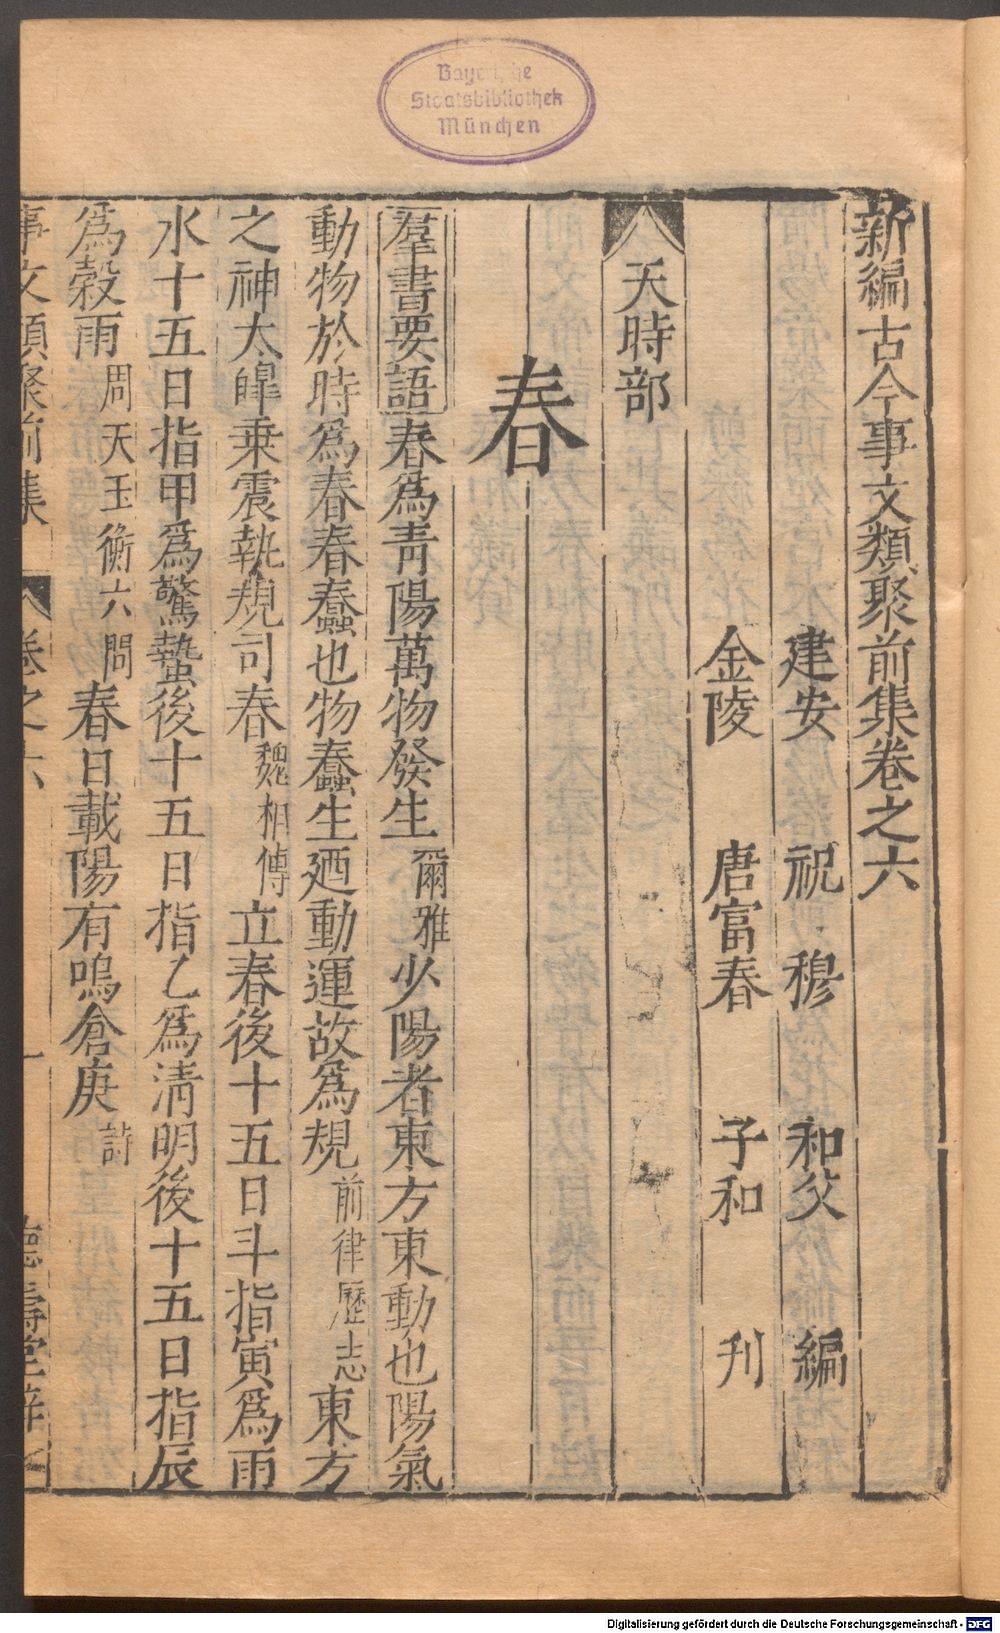 Bayerische
Staatsbibliothek
München
新編古今事文類聚前集卷之六
建安 祝 穆 和父 編
金陵 唐富春 子和 刊
天時部
春
羣書要語春爲靑陽萬物發生爾雅少陽者東方東動也陽氣
動物於時爲春春蠢也物蠢生廼動運故爲規前律歷志東方
之神太皥乗震執規司春魏相傳立春後十五日斗指寅爲雨
水十五日指甲爲驚蟄後十五日指乙爲淸明後十五日指辰
爲榖雨周天玉衡六間春日載陽有鳴倉庚詩
事文類聚前集 卷之六 一 德壽堂梓
Digitalisierung gefördert durch die Deutsche Forschungsgemeinschaft - DFG